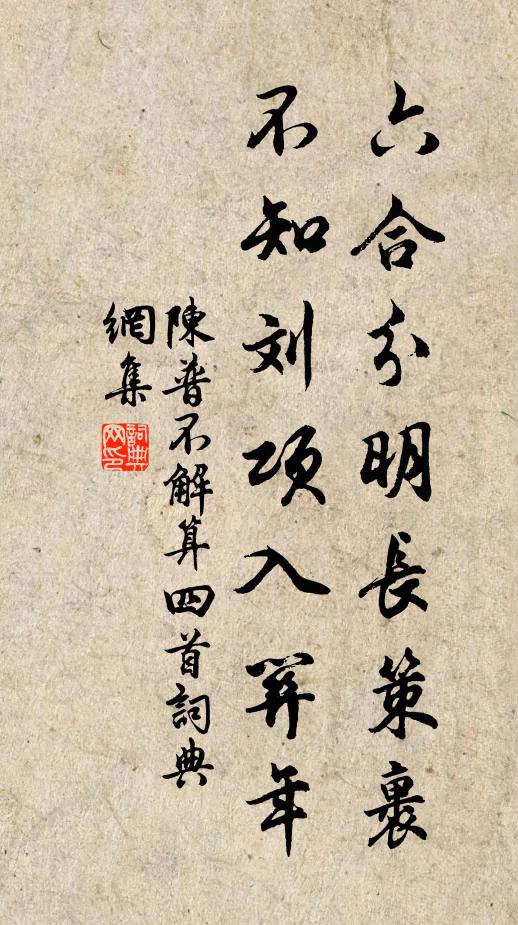 六合分明長策裏
不知刘項入關年
陳普不解算四首詞典
網集
詞典
网印